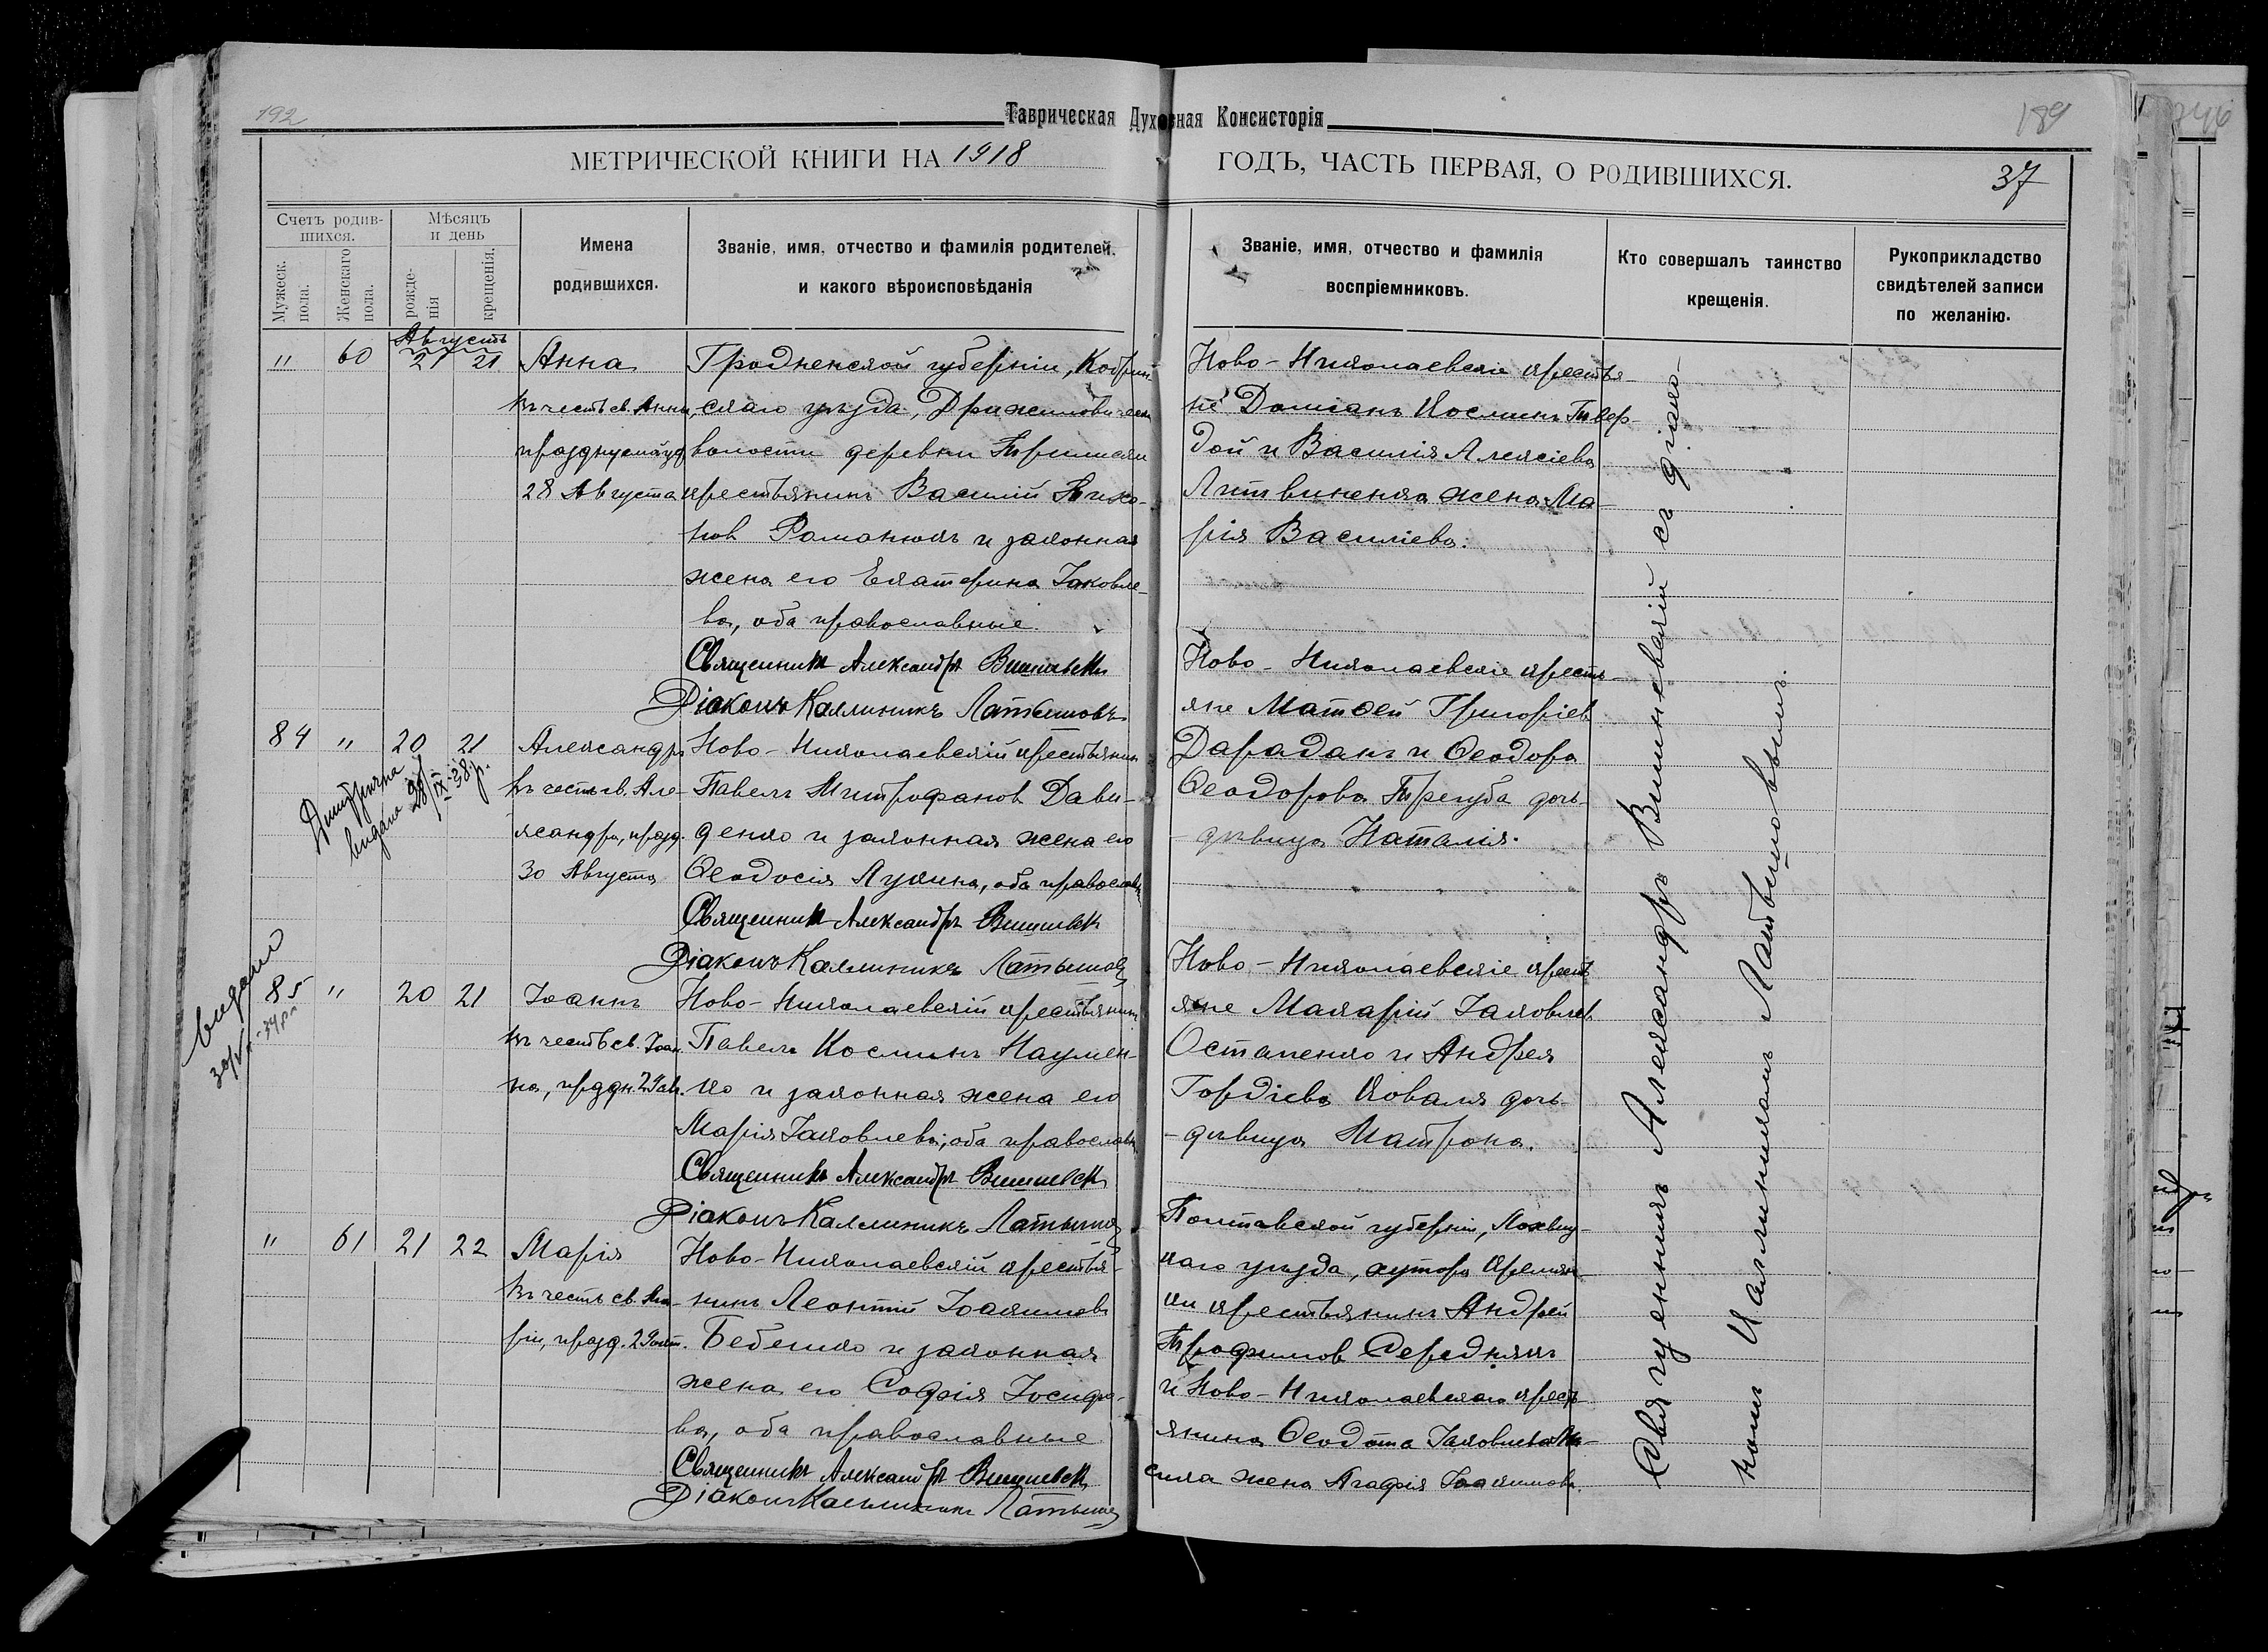 192
Таврическая Духовная Консисторія
189
МЕТРИЧЕСКОЙ КНИГИ НА 1918
ГОДЪ, ЧАСТЬ ПЕРВАЯ, О РОДИВШИХСЯ.
37
Счетъ родив-
шихся.
Мужеск.
пола.
Женскаго
пола.
Мѣсяцъ
и день
рожде-
нія
крещенія.
Имена
родившихся.
Званіе, имя, отчество и фамилія родителей,
и какого вѣроисповѣданія
Званіе, имя, отчество и фамилія
воспріемниковъ.
Кто совершалъ таинство
крещенія.
Рукоприкладство
свидѣтелей записи
по желанію.
Августъ
" 60 21 21 Анна
въ честь св. Анны,
празднуемой
28 Августа
Гродненской губерніи, Кобрин-
скаго уѣзда,
волости деревни
крестьянинъ Василій Тихо-
нов Романюкъ и законная
жена его Екатерина Іаковле-
ва, оба православные.
Священникъ Александръ Вишневскій
Діаконъ Каллиникъ Латышовъ
Ново-Николаевскіе крестья-
не Доміанъ Космин Твер-
дой и Василія Алексіева
Литвиненка жена Ма-
рія Василіева.
84 " 20 21 Александръ
въ честь св. Але-
ксандра, празд.
30 Августа
видано 28/IX-38р.
Ново-Николаевскій крестьянин
Павелъ Митрофанов Дави-
денко и законная жена его
Ѳеодосія Лукина, оба православн.
Священникъ Александръ Вишневскій
Діаконъ Каллиникъ Латышовъ
Ново-Николаевскіе кресть-
яне Матѳей Григоріев
Дараданъ и Ѳеодора
Ѳеодорова Трегуба дочь-
-дѣвица Наталія.
видано
85 " 20 21 Іоаннъ
въ честь св. Іоан-
на, праздн. 29 ав.
Ново-Николаевскій крестьянинъ
Павелъ Косминъ Наумен-
ко и законная жена его
Марія Іаковлева, оба православн.
Священникъ Александръ Вишневскій
Діаконъ Каллиникъ Латышовъ
Ново-Николаевскіе кресть-
яне Макарій Іаковлев
Остапенко и Андрея
Гордіева Коваля дочь-
-дѣвица Матрона.
" 61 21 22 Марія
въ честь св. Ма-
ріи, празд. 29 окт.
Ново-Николаевскій крестья-
нинъ Леонтій Іоакимовъ
Бебешко и законная
жена его Софія Іосифо-
ва, оба православные
Священникъ Александръ Вишневскій
Діаконъ Каллиникъ Латышовъ
Полтавской губерніи, Лохвиц-
каго уѣзда, хутора
ки крестьянинъ Андрей
Трофимов Середнякъ
и Ново-Николаевскаго кресть-
янина Ѳеодота Іаковлева
жена Агафія Іоакимова.
Священникъ Александръ Вишневскій съ діако-
номъ Каллиникомъ Латышовымъ.